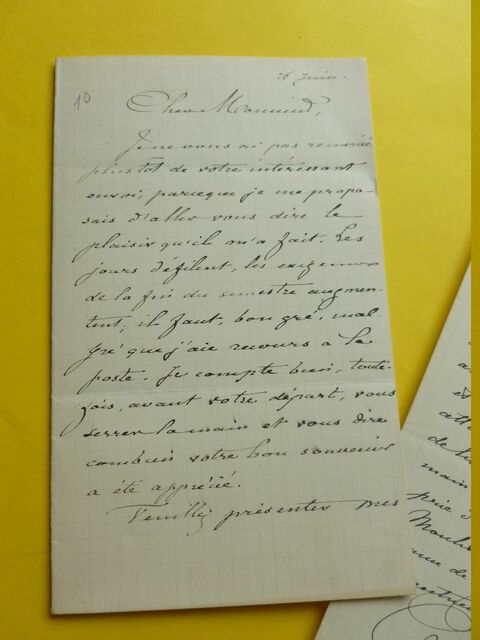 10
26 Juin.
Cher Monsieur,
Je ne vous ai pas remercié
plus tôt de votre intéressant
envoi, parceque je me propo-
sais d'aller vous dire le
plaisir qu'il m'a fait. Les
jours défilent, les exigences
de la fin du semestre augmen-
tent; il faut, bon gré, mal-
gré que j'aie recours à la
poste. Je compte bien, toute-
fois, avant votre départ, vous
serrer la main et vous dire
combien votre bon souvenir
a été apprécié.
Veuillez présenter mes
et
de la
main
prié
Moulin